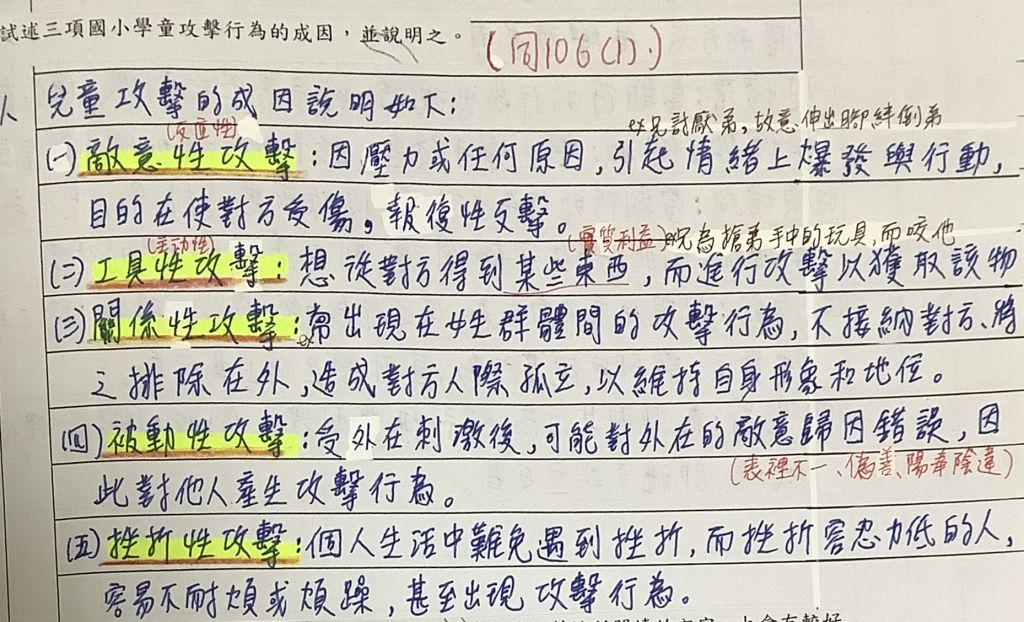 試述三項國小學童攻擊行為的成因，並說明之。
(同106(1).)
兒童攻擊的成因說明如下：
(反應性)
ex兄討厭弟，故意伸出腳絆倒弟
(一)敵意性攻擊：因壓力或任何原因，引起情緒上爆發與行動，
目的在使對方受傷。報復性反擊。
(主動性)
(實質利益)
ex兄為搶弟手中的玩具，而咬他
(二)工具性攻擊：想從對方得到某些東西，而進行攻擊以獲取該物
(三)關係性攻擊：常出現在女生群體間的攻擊行為，不接納對方、將
之排除在外，造成對方人際孤立，以維持自身形象和地位。
(四)被動性攻擊：受外在刺激後，可能對外在的敵意歸因錯誤，因
此對他人產生攻擊行為。
(表裡不一、偽善、陽奉陰違)
(五)挫折性攻擊：個人生活中難免遇到挫折，而挫折容忍力低的人，
容易不耐煩或煩躁，甚至出現攻擊行為。